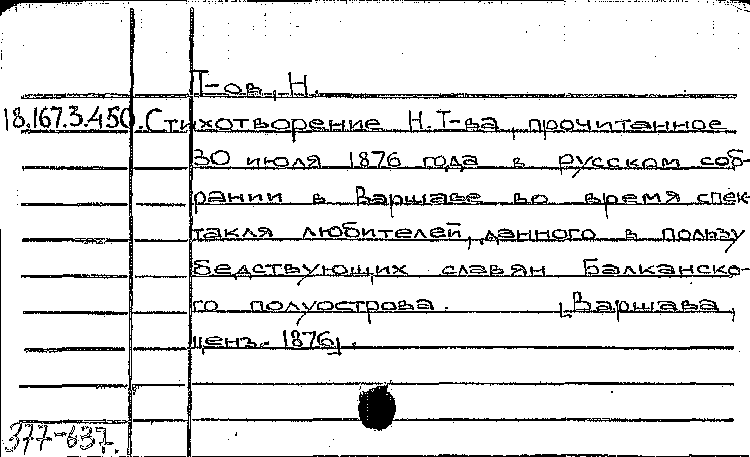 Т-ов, Н.
18.167.3.450. Стихотворение Н. Т-ва, прочитанное
30 июля 1876 года в русском соб-
рании в Варшаве во время спек-
такля любителей, данного в пользу
бедствующих славян Балканско-
го полуострова. [Варшава,
ценз. 1876].
377-637.